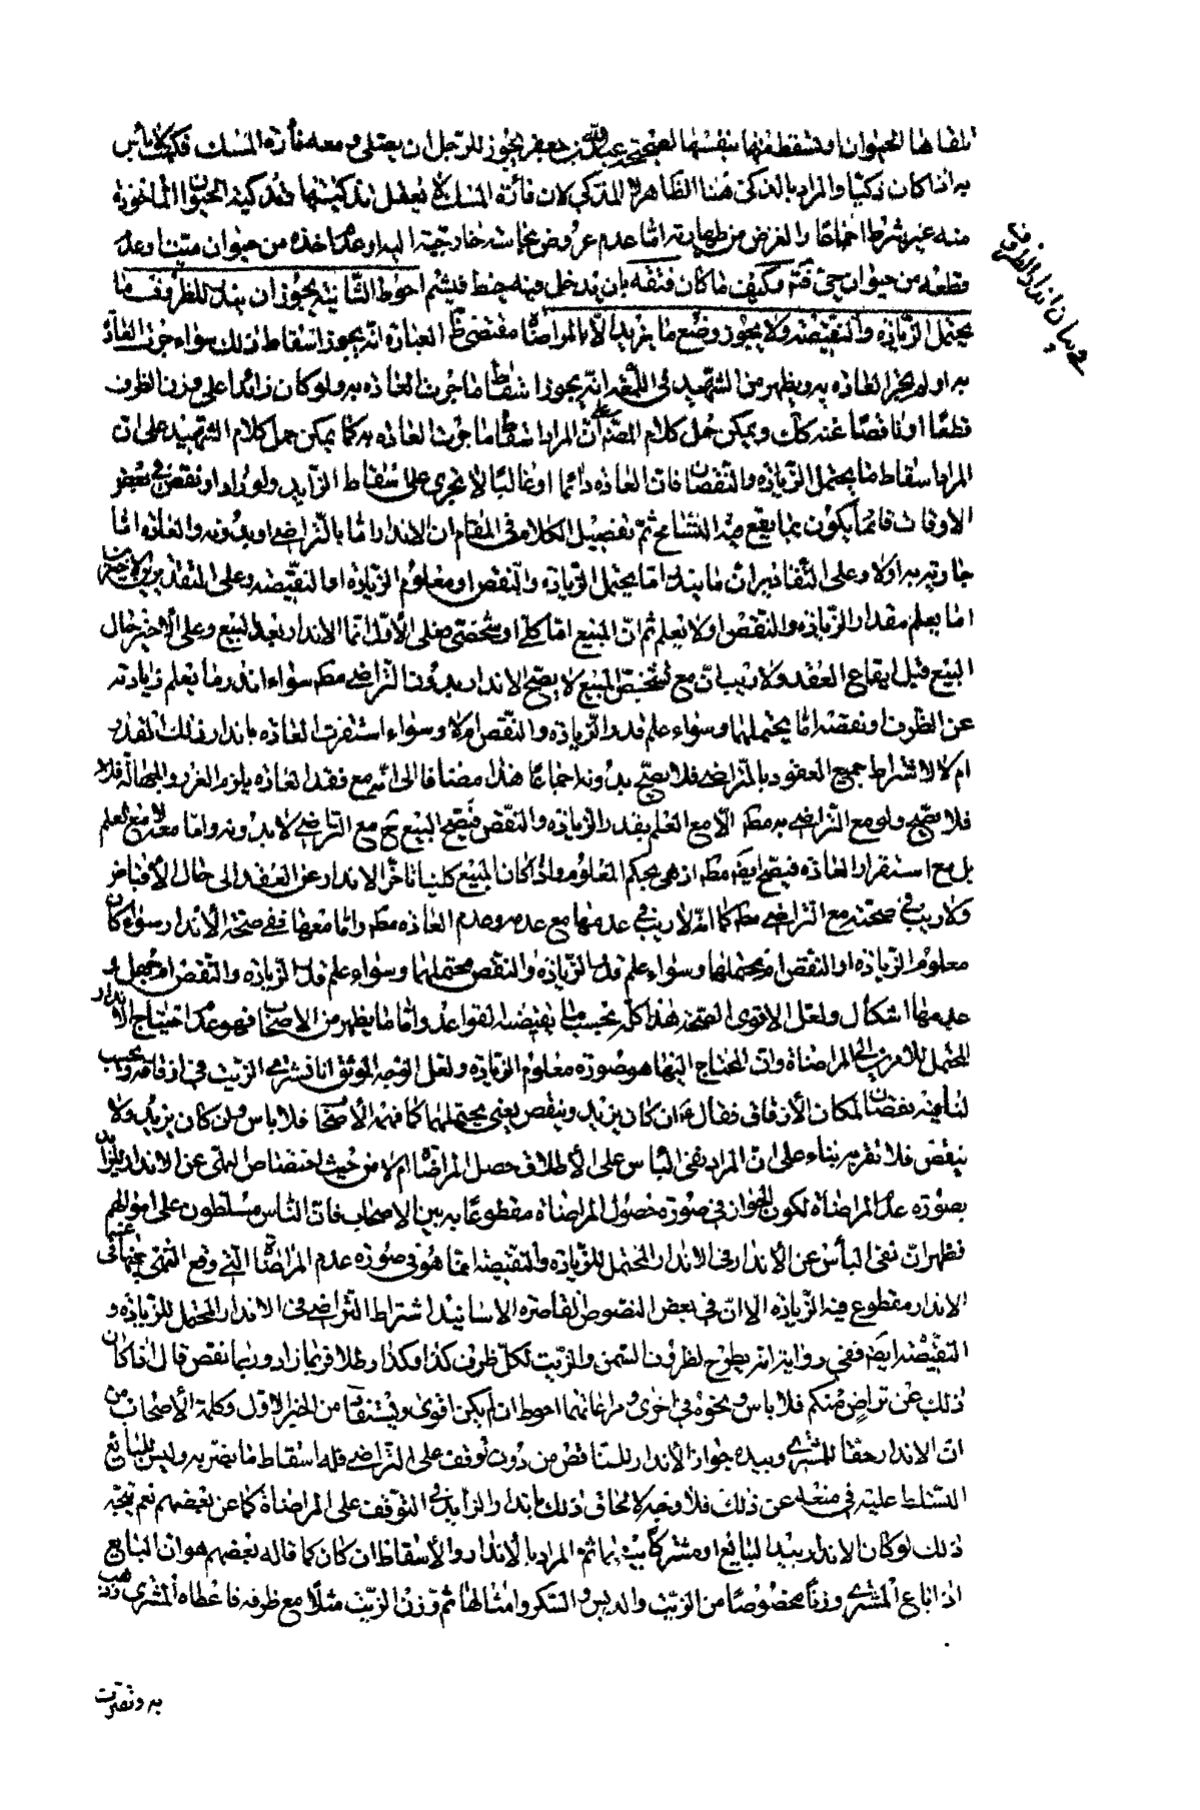 تلقاها الحيوان او تسقط فتها بنفسها لصحيح عبدالله بن جعفر يجوز للرجل ان يصلى ومعه فأرة المسك فكتب لا بأس
به اذا كان ذكيا والمراد بالذكى هنا الظاهر لا المذكى لان فأرة المسك لا يعقل تذكيتها وتذكية الحيوان المأخوذة
منه غير شرط اجماعا والغرض من طهارته اما عدم عروض نجاسة خارجية اليه او عدم اخذه من حيوان ميت او عدم
قطعه من حيوان حى فتم وكيف ما كان فتقه بان يدخل فيه خيط فيشم احوط الثانية يجوز ان يندر للظروف ما
يحتمل الزيادة والنقيصة ولا يجوز وضع ما يزيد الا بالمراضاة مقتضى العبارة انه يجوز اسقاط ذلك سواء جرت العادة
به او لم يجر العادة به ويظهر من الشهيد فى اللمعة انه يجوز اسقاط ما جرت العادة به ولو كان زائدا على وزن الظروف
قطعا او ناقصا عنه كك ويمكن حمل كلام المصنف على ان المراد اسقاط ما جرت العادة به كما يمكن حمل كلام الشهيد على ان
المراد اسقاط ما يحتمل الزيادة والنقصان فان العادة دائما او غالبا لا تجرى على اسقاط الزايد ولو زاد او نقص فى بعض
الاوقات فانما يكون بما يقع فيه التسامح ثم تفصيل الكلام فى المقام ان الاندار اما بالتراضى او بدونه والعادة اما
جارية به اولا وعلى التقادير ان ما يندر اما يحتمل الزيادة والنقص او معلوم الزيادة او النقيصة وعلى التقديرين الاخيرين
اما يعلم مقدار الزيادة والنقص اولا يعلم ثم ان المبيع اما كلى او شخصى فعلى الأول اتما الاندار بعد البيع وعلى الاخير حال
البيع قبل ايقاع العقد ولا ريب ان مع تشخيص المبيع لا يصح الاندار بدون التراضى مطه سواء اندر ما يعلم زيادته
عن الظروف او نقصه اما يحتملهما وسواء علم قدر الزيادة والنقص ام لا وسواء استقرت العادة باندار ذلك المقدار
ام لا لاشتراط جميع العقود بالتراضى فلا يصح بدونه اجماعا هذا مضافا الى انه مع فقد العادة يلزم الغرر والجهالة فلا
فلا يصح ولو مع التراضى به مطه الا مع العلم بقدر الزيادة والنقص فيصح البيع ح مع التراضى لا بدونه واما معه لا مع العلم
بل مع استقرار العادة فيصح ايضه مطه اذ هى بحكم المعلوم واذا كان المبيع كليا فاخر الاندار عن العقد الى حال الأقباض
ولا ريب فى صحته مع التراضى مطه كما انه لا ريب فى عدمها مع عدمه وعدم العادة مطه واما معها ففى صحة الأندار سواء كان
معلوم الزيادة او النقص او محتملها وسواء علم قدر الزيادة والنقص محتملهما وسواء علم قدر الزيادة والنقص ام جهل و
عدمها اشكال ولعل الاقوى الصحة هذا كله بحسب ما يقتضيه القواعد واما ما يظهر من الاصحاب فهو عدم احتياج الاندار
المحتمل للامرين الى المراضاة وان المحتاج اليها هو صورة معلوم الزيادة ولعل الوجه الموثق انا نشترى الزيت فى ازقاقه ويحسب
لنا فيه نقصان لمكان الأزقاق فقال ع ان كان يزيد وينقص يعنى يحتملهما كما فهمه الأصحاب فلا باس وان كان يزيد ولا
ينقص فلا تقربه بناء على ان المراد نفى الباس على الأطلاق حصل المراضاة ام لا من حيث اختصاص النهى عن الاندار بالزايد
بصورة عدم المراضاة لكون الجواز فى صورة حصول المراضاة مقطوعا به بين الاصحاب فان الناس مسلطون على اموالهم
فظهر ان نفى البأس عن الأندار فى الاندار المحتمل للزيادة والنقيصة انما هو فى صورة عدم المراضاة التى وقع النهى عنه فيها فى
الاندار مقطوع فيه الزيادة الا ان فى بعض النصوص القاصرة الاسانيد اشتراط التراضى فى الاندار المحتمل للزيادة و
النقيصة ايضه ففى رواية انه يطرح لظروف السمن والزيت لكل ظرف كذا وكذا رطلا فربما زاد وربما نقص قال اذا كان
ذلك عن تراض منكم فلا باس ونحوه فى اخرى ومراعاتهما احوط ان لم يكن اقوى ويستفاد من الخبر الاول وكلمة الأصحاب من
ان الاندار حقا للمشترى وبيده جواز الأندار للتناقص من دون توقف على التراضى فله اسقاط ما يضر به وليس للبايع
التسلط عليه فى منعه عن ذلك فلا وجه لالحاق ذلك باندار الزايد فى التوقف على المراضاة كما عن بعضهم نعم يتجه
ذلك لو كان الاندار بيد البايع او مشتركا بينهما ثم المراد بالأندار والأسقاط ان كان كما قاله بعضهم هو ان البايع
اذا باع المشترى وزنا مخصوصا من الزيت والدبس والسكر وامثالها ثم وزن الزيت مثلا مع ظرفه فاعطاه المشترى
به و نقص
فى بيان اندار الظروف